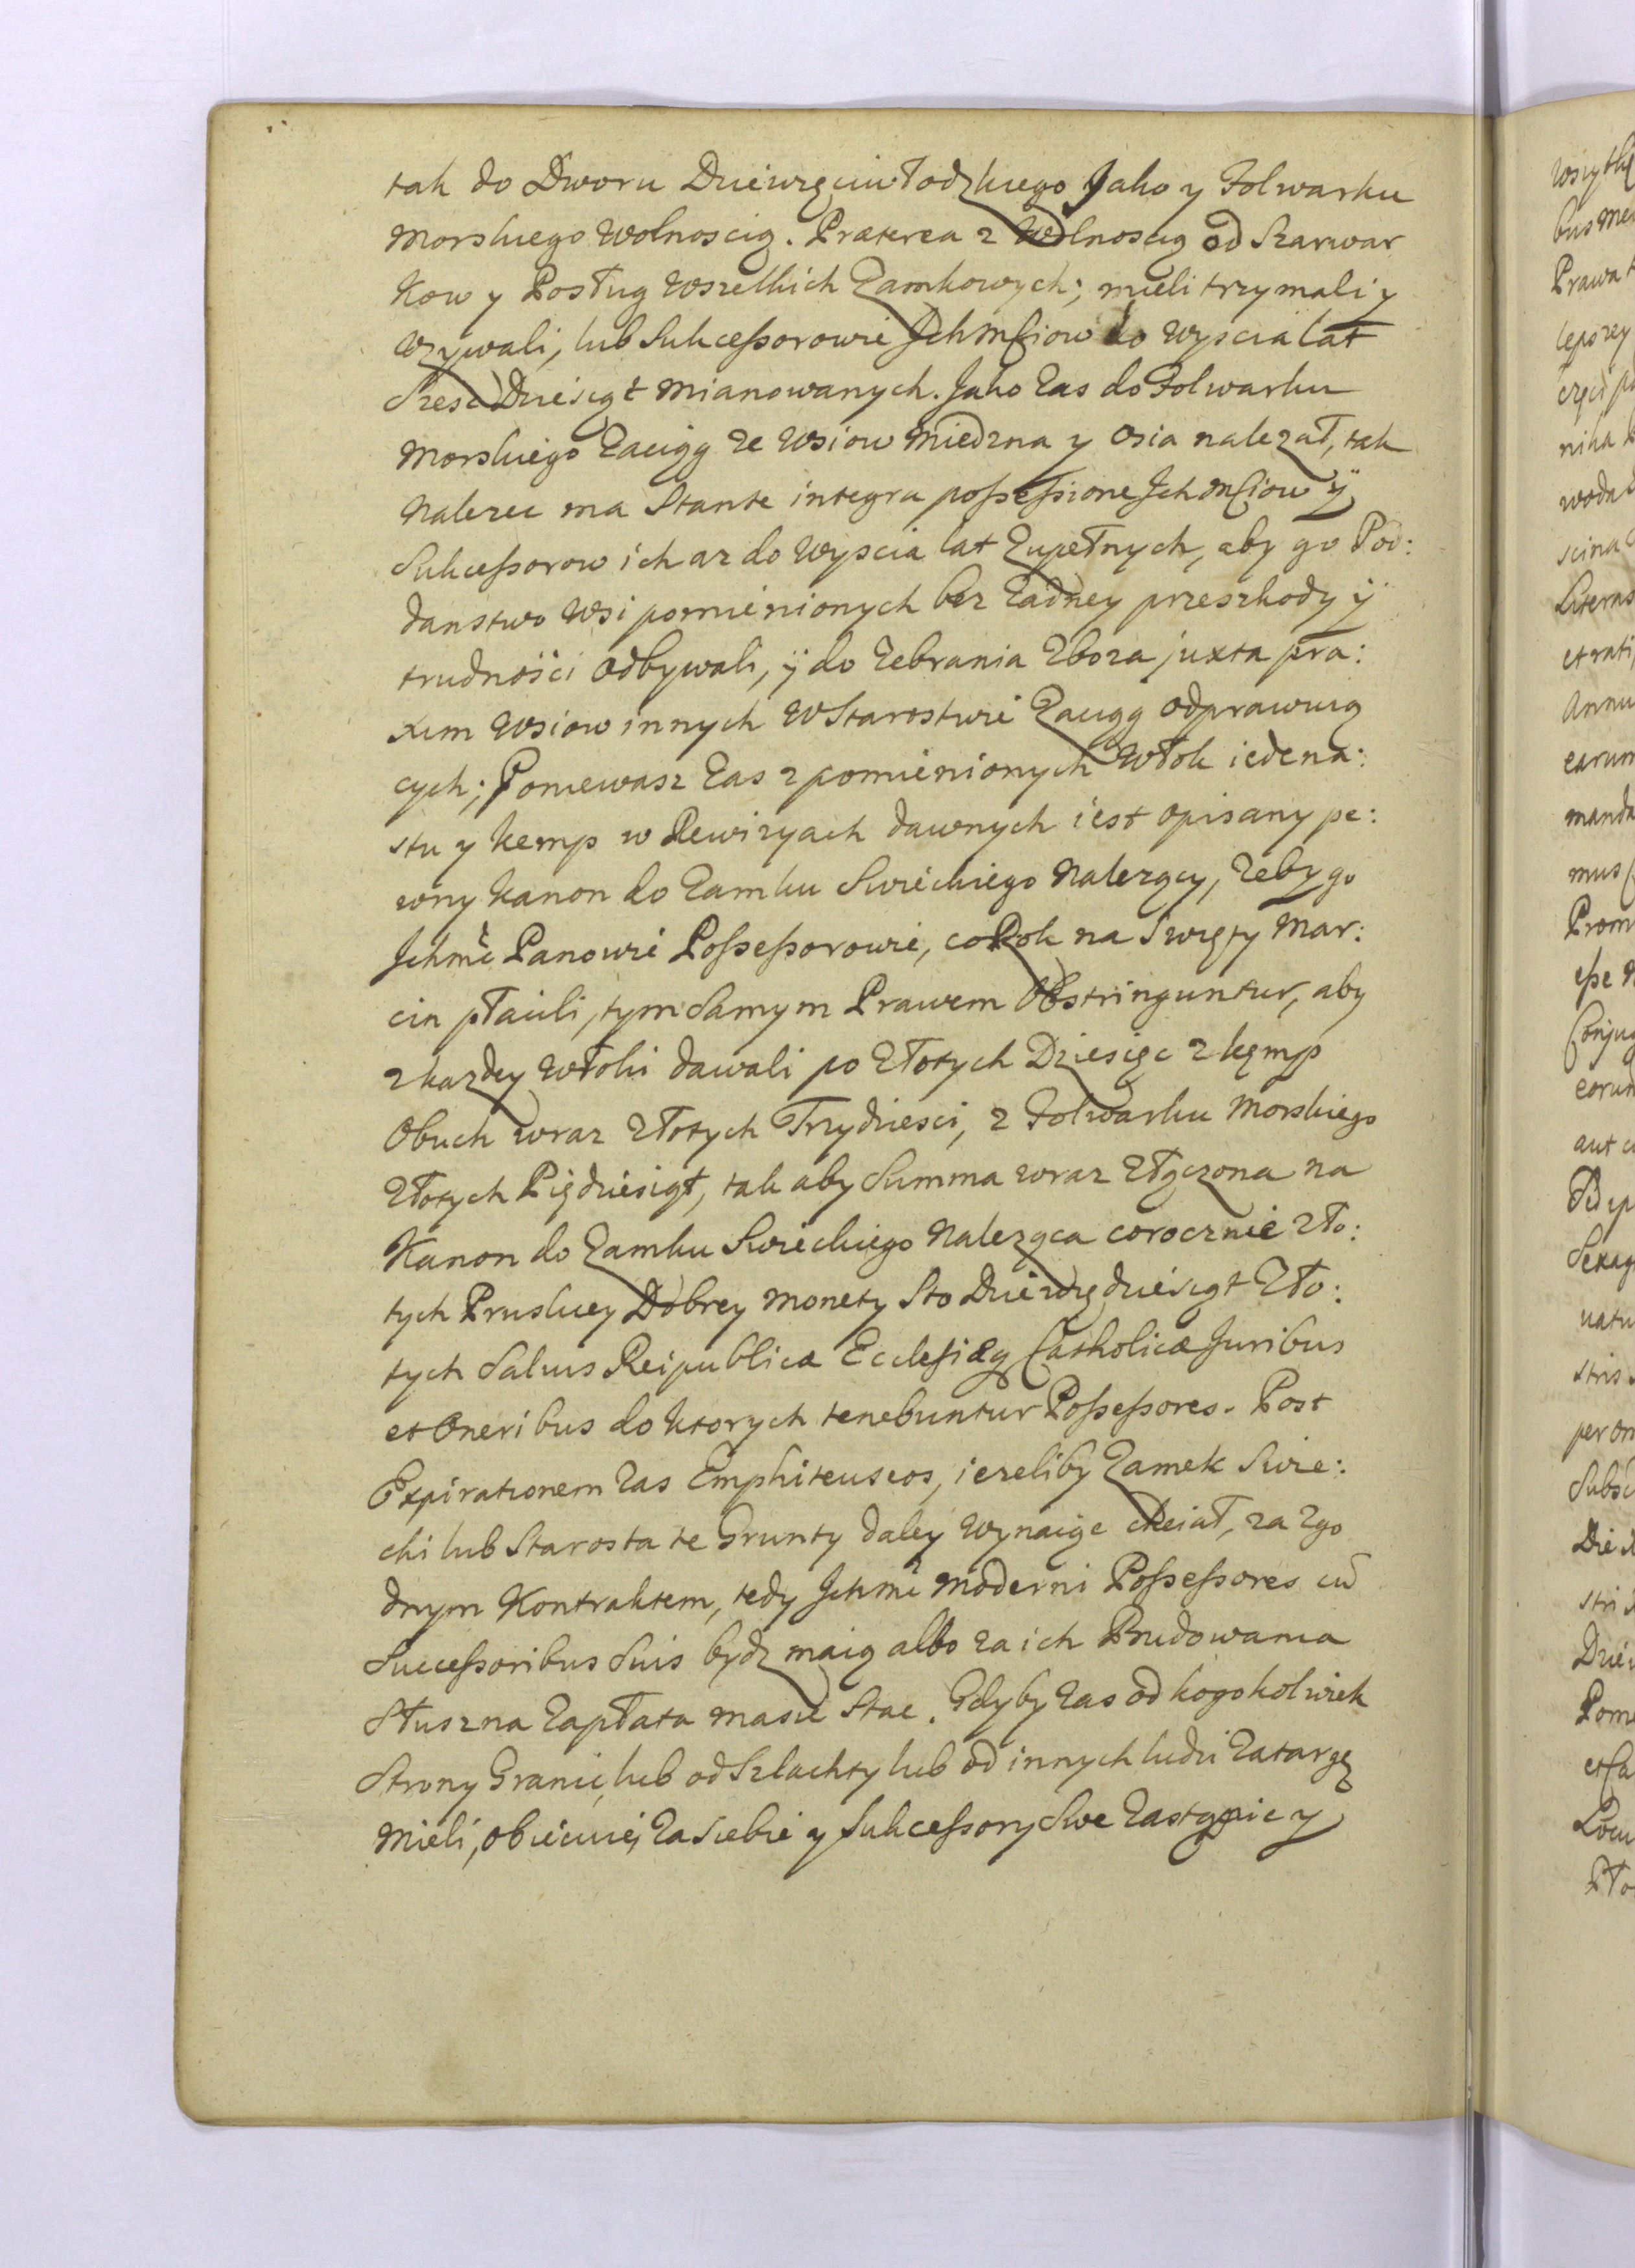 tak do Dworu Dziewięciwłodzkiego Jako y Folwarku
Morskiego Wolnoscią. Præterea z Wolnoscią od Szarwar
Kow y Posług Wszelkich Zamkowych; mieli trzymali y
Vzywali, lub Sukceßorowie Jchmściow do Wyscia lat
Szesc Dziesiąt mianowanych. Jako Zas do Folwarku
Morskiego Zaciąg ze Wsiow Miedzna y Osia nalezał, tak
Nalezec ma Stante integra poßeßione Jchmściow ÿ
Sukceßorow ich az do Wyscia lat Zupełnych, aby go Pod:
danstwo Wsi pomienionych bez Zadney przeszkody ÿ
trudnosci odbywali, ÿ do Zebrania Zboza juxta pra:
xim Wsiow innych W Starostwie Zaciąg odprawuią
cych; Poniewasz Zas z pomienionych Włok iedena:
stu y Kemp w Rewizyach dawnych iest opisany pe:
wny Kanon do Zamku Swieckiego Nalezący, Zeby go
Jchmć Panowie Poßeßorowie, co Rok na Swięty Mar:
cin płacili, tym Samym Prawem Obstringuntur, aby
z kazdey Włoki dawali po Złotych Dziesięc z kęmp
Obuch wraz Złotych Trzydziesci, z Folwarku Morskiego
Złotych Piędziesiąt, tak aby Summa wraz Złączona na
Kanon do Zamku Swieckiego Naleząca corocznie Zło:
tych Pruskiey Dobrey Monety Sto Dziewiędziesiąt Zło:
tych Salvis Reipublicæ Ecclesiæq Catholicæ Juribus
et Oneribus do Ktorych tenebuntur Poßeßores. Post
Expirationem Zas Emphiteuseos, iezeliby Zamek Swie:
cki lub Starosta te Grunty daley Wynaiąc chciał, za Zgo
dnym Kontraktem, tedy Jchmć Moderni Poßeßores cū
Succeßoribus Suis bydz maią albo za ich Budowania
Słuszna Zapłata ma sie Stac. Gdyby Zas od kogokolwiek
Strony Granic, lub od Szlachty lub od innych ludzi Zatargę
Mieli, obiecuię Za Siebie y Sukceßory Swe Zastąpic y